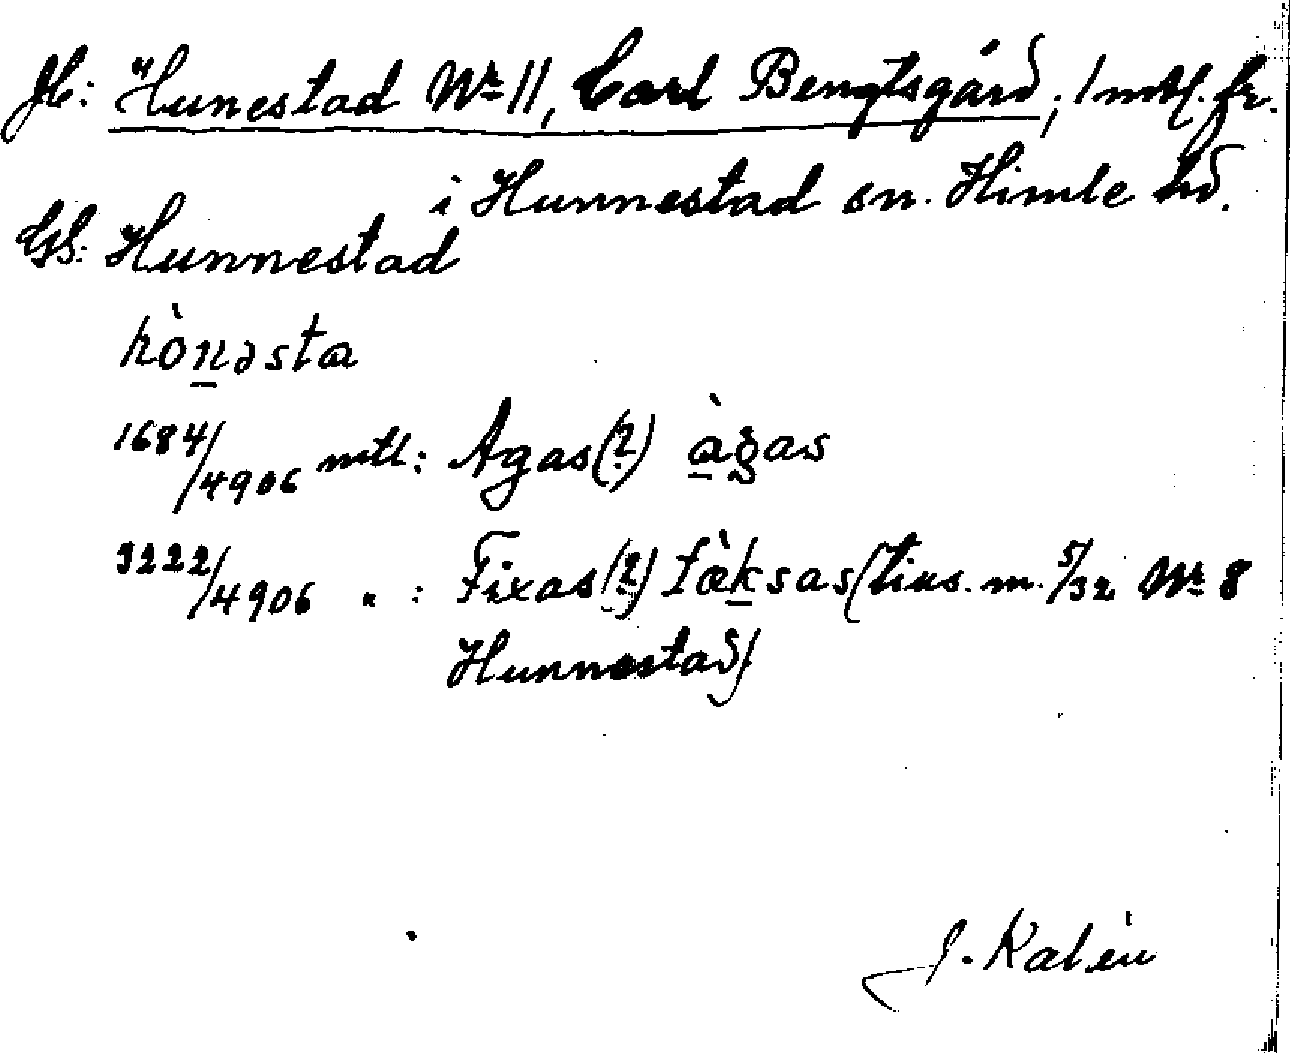 Jb: Hunestad Nr 11, Carl Bengtsgård, 1 mtl. fr.
i Hunnestad sn. Himle hd.
GS: Hunnestad
hònəsta
1684/4906 mtl: Agas(?) àgas
3222/4906 " : Fixas(?) fæ̀ksas (tills. m. 5/32 Nr 8
Hunnestad)
J. Kalén